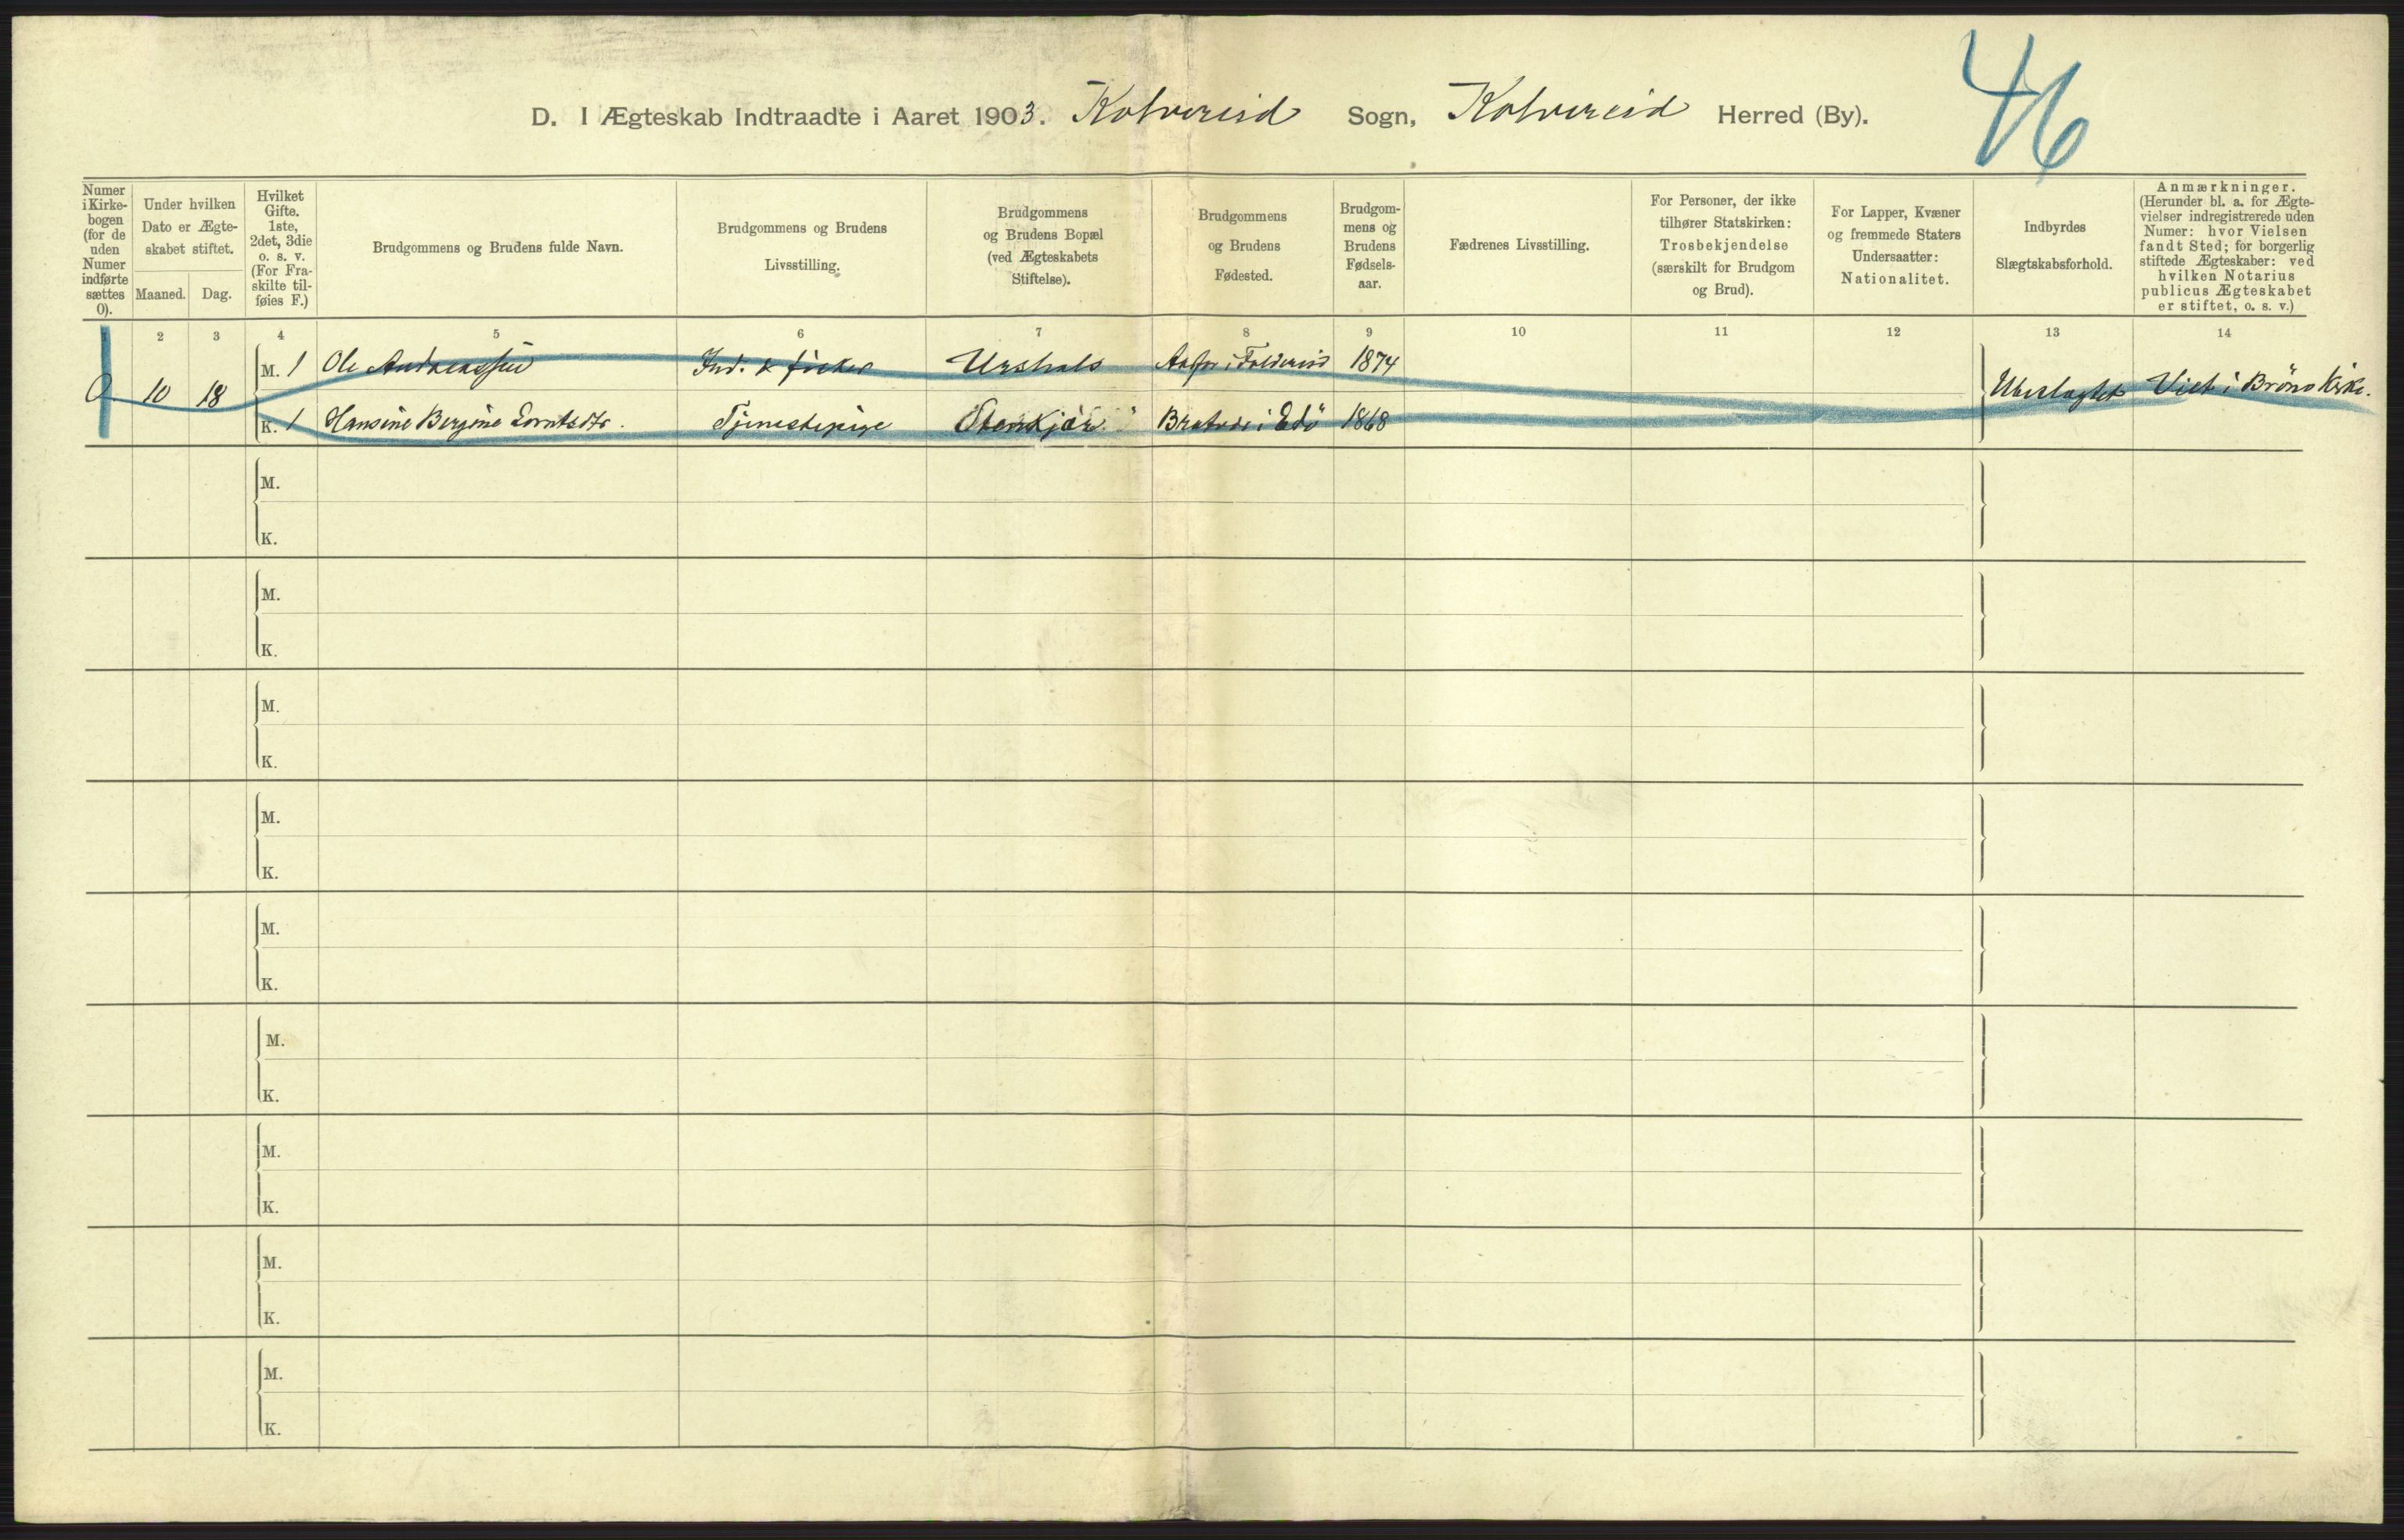 46
D. I Ægteskab Indtraadte i Aaret 1903. Kolvereid Sogn, Kolvereid Herred (By).
Numer i Kirke-bogen (for de uden Numer indførte sættes 0).
Under hvilken Dato er Ægte-skabet stiftet.
Maaned. Dag.
Hvilket Gifte. 1ste, 2det, 3die o. s. v. (For Fra-skilte til-føies F.)
Brudgommens og Brudens fulde Navn.
Brudgommens og Brudens Livsstilling.
Brudgommens og Brudens Bopæl (ved Ægteskabets Stiftelse).
Brudgommens og Brudens Fødested.
Brudgom-mens og Brudens Fødsels-aar.
Fædrenes Livsstilling.
For Personer, der ikke tilhører Statskirken: Trosbekjendelse (særskilt for Brudgom og Brud).
For Lapper, Kvæner og fremmede Staters Undersaatter: Nationalitet.
Indbyrdes Slægtskabsforhold.
Anmærkninger. (Herunder bl. a. for Ægte-vielser indregistrerede uden Numer: hvor Vielsen fandt Sted; for borgerlig stiftede Ægteskaber: ved hvilken Notarius publicus Ægteskabet er stiftet, o. s. v.)
1 2 3 4 5 6 7 8 9 10 11 12 13 14
0 10 18 M. 1 Ole Andreassen Ind. & fisker i Foldereid 1874 Ubeslægtet Viet i Brønø Kirke.
K. 1 Hansine Bergine Tjenestepige Stenkjær i Edö 1868
M.
K.
M.
K.
M.
K.
M.
K.
M.
K.
M.
K.
M.
K.
M.
K.
M.
K.